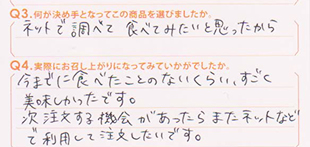 Q3.何が決め手となってこの商品を選びましたか。
ネットで調べて 食べてみたいと思ったから
Q4.実際にお召し上がりになってみていかがでしたか。
今までに食べたことのないくらい、すごく
美味しかったです。
次注文する機会があったらまたネットなど
で利用して注文したいです。